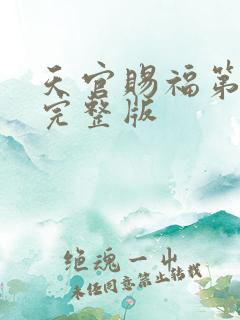 天官赐福第
完整版
绝魂一出
未经同意禁止转载